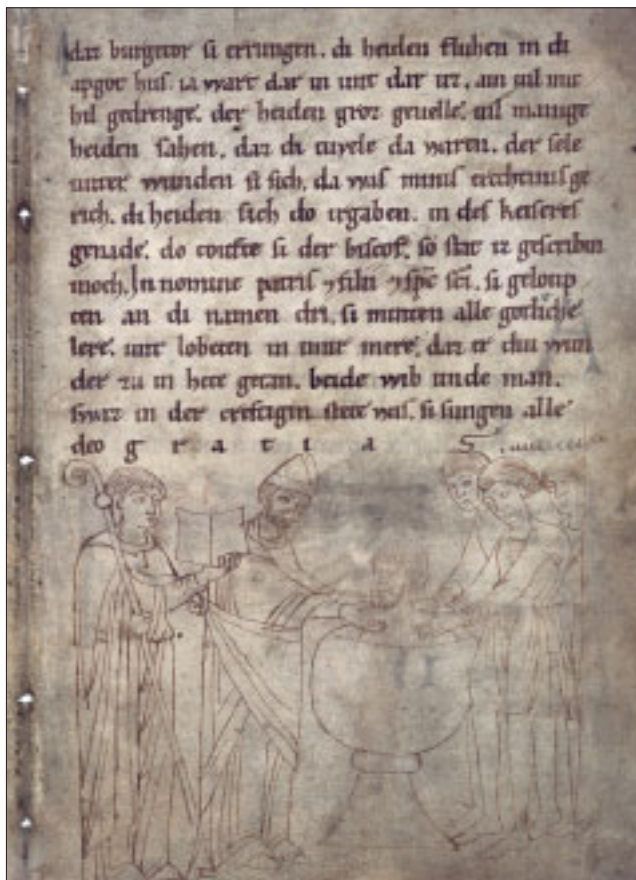 daz burgetor si errungen. di heiden fluhen in di
apgot hus. ia wart dar in unt dar uz. ain uil mic
hil gedrenge. der heiden groz geuelle. uil manige
heiden sahen. daz di tiuele da waren. der sele
unter wunden si sich. da was minis trechtinis ge
rich. di heiden sich do irgaben. in des keiseres
genade. do toufte si der biscof. so stat iz gescribin
noch. In nomine patris ⁊ filii ⁊ spc sci. si geloup
ten an di namen dri. si minten alle gotliche
lere. unt lobeten in imir mere. daz er diu wun
der zu in hete getan. beide wib unde man.
swaz in der crestigin stete was. si sungen alle
deo g r a t i a s